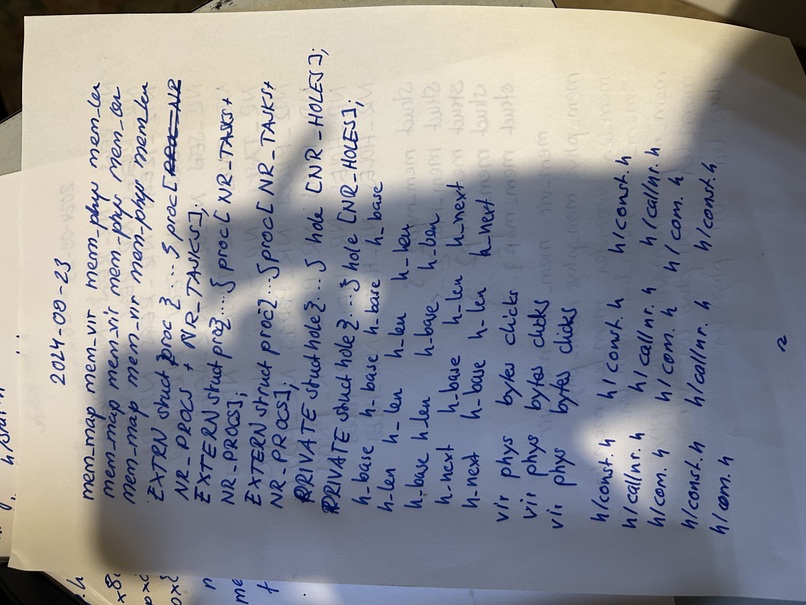 2024-09-23
mem_map mem_vir mem_phys mem_len
mem_map mem_vir mem_phys mem_len
mem_map mem_vir mem_phys mem_len
EXTRN struct proc {...} proc[
NR_PROCS + NR_TASKS];
EXTERN struct proc {...} proc[NR_TASKS+
NR_PROCS];
EXTERN struct proc {...} proc[NR_TASKS+
NR_PROCS];
PRIVATE struct hole {...} hole [NR_HOLES];
PRIVATE struct hole {...} hole [NR_HOLES];
h_base h_base h_base h_base
h_len h_len h_len h_len
h_base h_len h_base h_len
h_next h_base h_len h_next
h_next h_base h_len h_next
vir phys bytes clicks
vir phys bytes clicks
vir phys bytes clicks
h/const.h h/const.h h/const.h
h/callnr.h h/callnr.h h/callnr.h
h/com.h h/com.h h/com.h
h/const.h h/callnr.h h/const.h
h/com.h
2